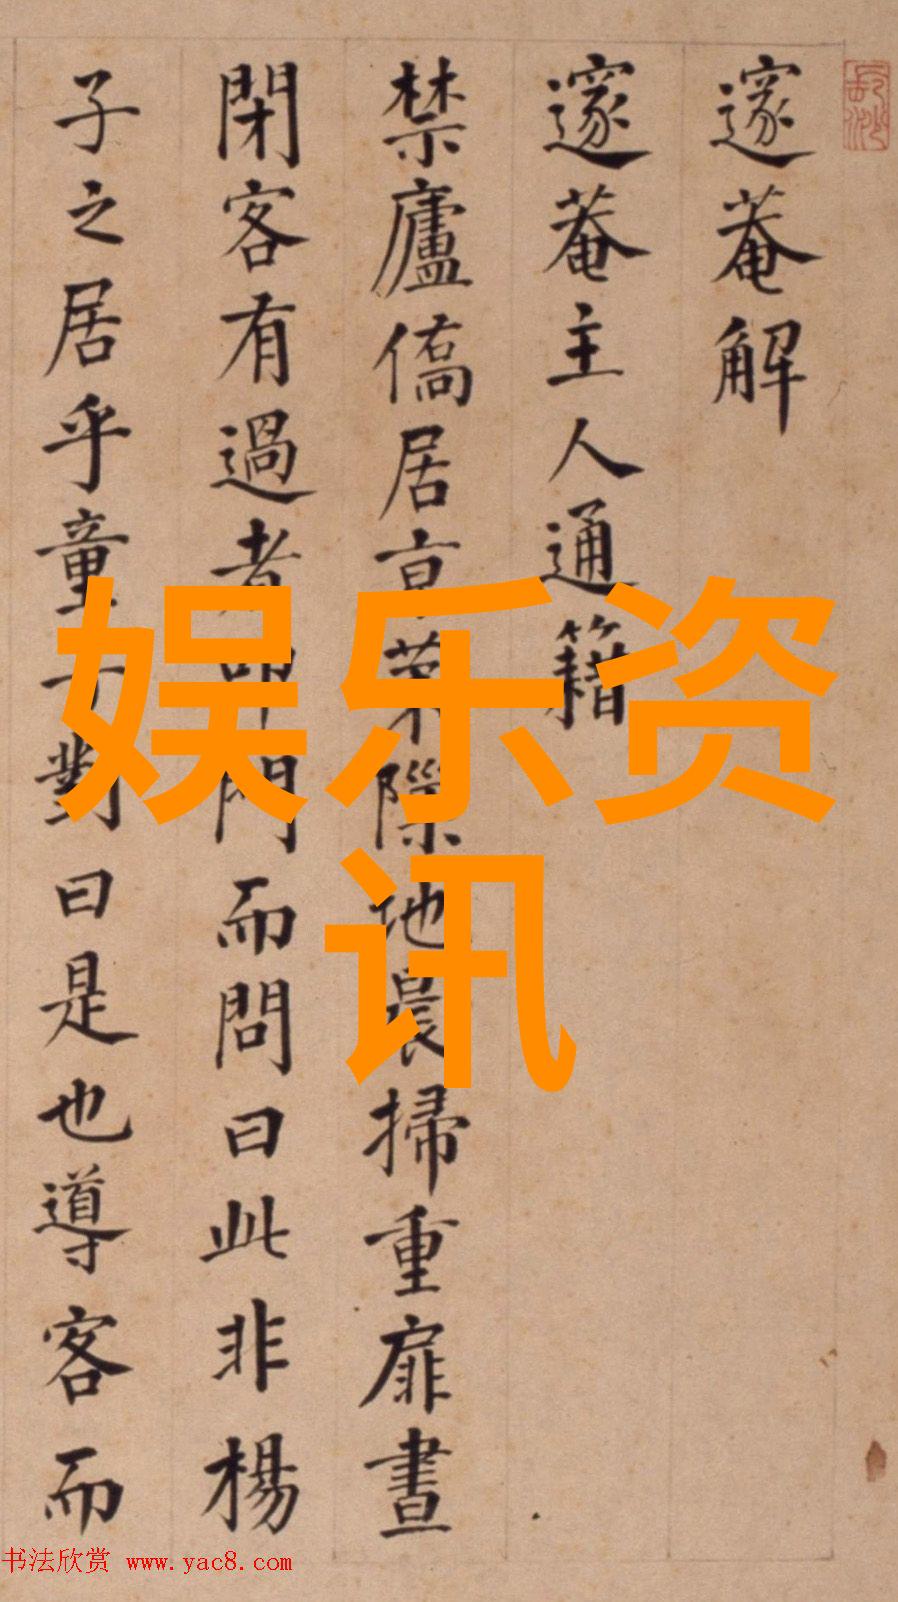 邃菴解
邃菴主人通籍
禁廬僑居京第隙地晨掃重扉晝
閉客有過者叩門而問曰此非楊
子之居乎童子對曰是也導客而
娱乐资
讯
书法欣赏 www.yac8.com